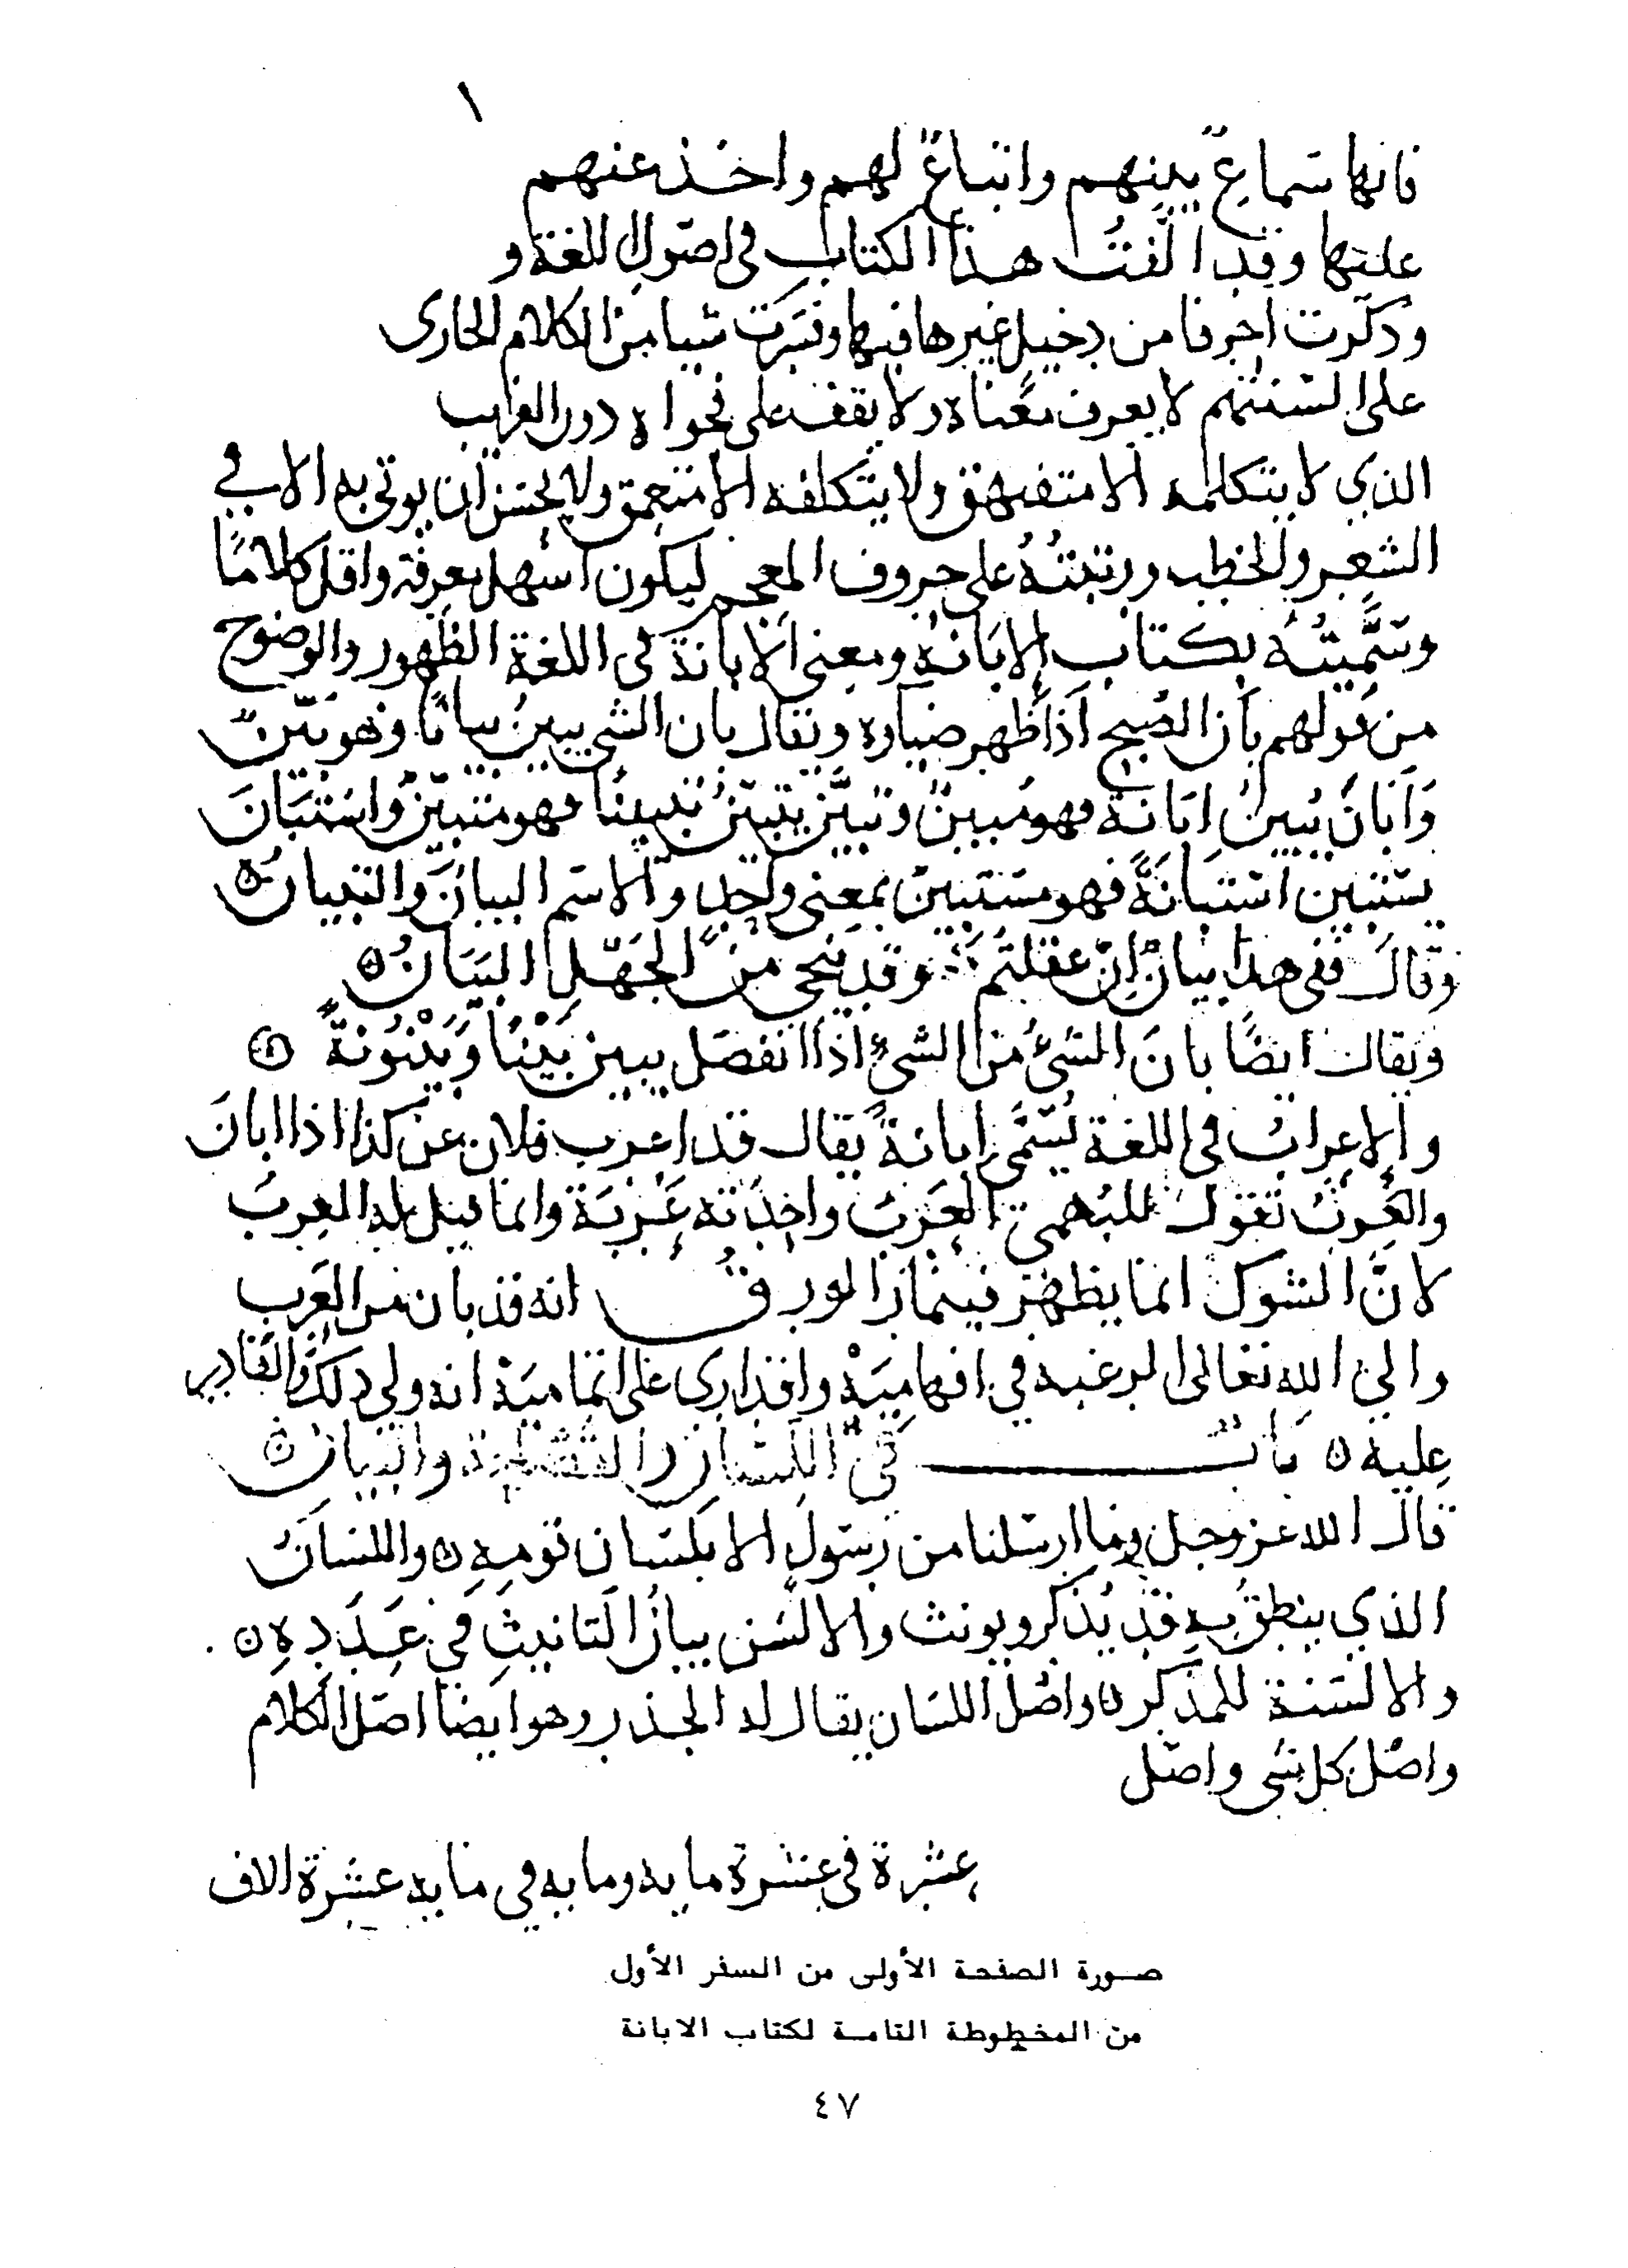 ١
فانها سماع بينهم واتباع لهم واخذ عنهم
علتها وقد الفت هذا الكتاب في اصول اللغة و
وذكرت احرفا من دخيل غيرها فيها وفسرت شيا من الكلام الجارى
على السنتهم لا يعرف معناه ولا يقف على فحواه دون الغايب
الذي لا يتكلمه الا متفيهق ولا يتكلفه الا متعمق ولا يحسن ان يوتى به الا في
الشعر والخطب ورتبتُهُ على حروف المعجم ليكون اسهل معرفة واقل كلامًا
وسَمَّيتُهُ بكتاب الابانة ومعنى الابانة في اللغة الظهور والوضوح
من قولهم بان الصبح اذا ظهر ضياوه ويقال بان الشي يبين بيانًا وهو بَيّنٌ
وَاَبَانَ يُبينُ اِبَانَةً فهو مُبينٌ وتبيَّن يتبيّنُ تبيينًا فهو متبيّنٌ وَاسْتَبَانَ
يستبين استبانَةً فهو مستبينٌ بمعنى واحدٍ والاسم البيانُ والتبيانُ ٥
وقالَ ففى هذا بيانٌ اِنْ عقلتُم وقد ينحى منَ الجَهْلِ البَيَانُ ٥
ويقال ايضًا بانَ الشيُ منَ الشيء اذا انفصَل يبين بَيْنًا وَبَيْنُونَةً ٥
والاعرابُ في اللغة يُسَمَّى ابانةً يقال قد اعرب فلان عن كذا اذا ابانَ
والعَرَبُ تقول للبُهمى العَرَبُ واحِدَته عَرَبَة وانما قيل له العربُ
لانَّ الشوك انما يظهر فيتمازالورق انه قد بان من العرب
والى الله تعالى الرغبه في افهاميَهْ واقدارى على اتماميَهْ انه ولي ذلك والقادر
عليه ٥ بابٌ في اللسان والفصاحة والبيان ٥
قال الله عز وجل وما ارسلنا من رسول الا بلسان قومه ٥ واللسانُ
الذي ينطق به قد يُذكر ويونث والالسن بيانُ التانيثِ في عَدَدِهِ ٥
والالسنة للمذكر ٥ واصل اللسان يقال له الجذر وهو ايضا اصل الكلام
واصْل كل شى واصل
عشرة في عشرة مايه ومايه في مايه عشرة الاف
صورة الصفحة الأولى من السفر الأول
من المخطوطة التامة لكتاب الابانة
٤٧